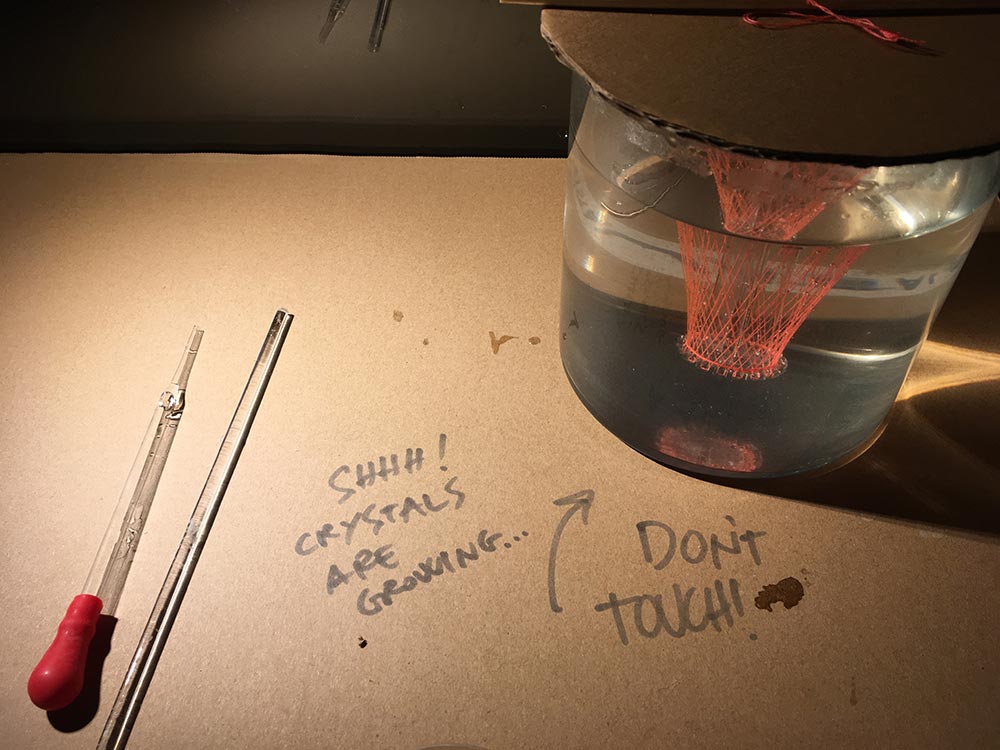 SHHH!
CRYSTALS
ARE
GROWING...
DON'T
TOUCH!